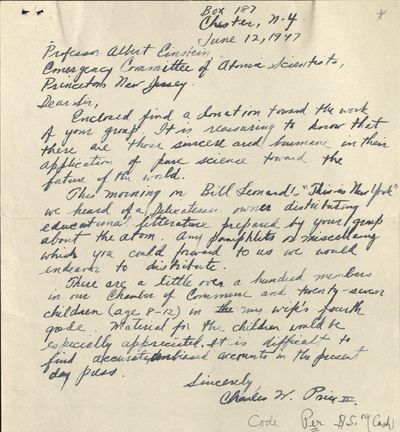 Box 187
Chester, N.Y.
June 12, 1947
Professor Albert Einstein
Emergency Committee of Atomic Scientists,
Princeton New Jersey.
Dear Sir,
Enclosed find a donation toward the work
of your group. It is reassuring to know that
there are those sincere and humane in their
application of pure science toward the
future of the world.
This morning on Bill Leonard's "This is New York"
we heard of a Delicatessen owner distributing
educational litterature prepared by your group
about the atom. Any pamphlets or miscellany
which you could forward to us we would
endeavor to distribute.
There are a little over a hundred members
in our Chamber of Commerce and twenty-seven
children (age 8-12) in my wife's fourth
grade. Material for the children would be
especially appreciated. It is difficult to
find accurate unbiased accounts in the present
day press.
Sincerely,
Charles W. Price III.
Code Per $5. Cash